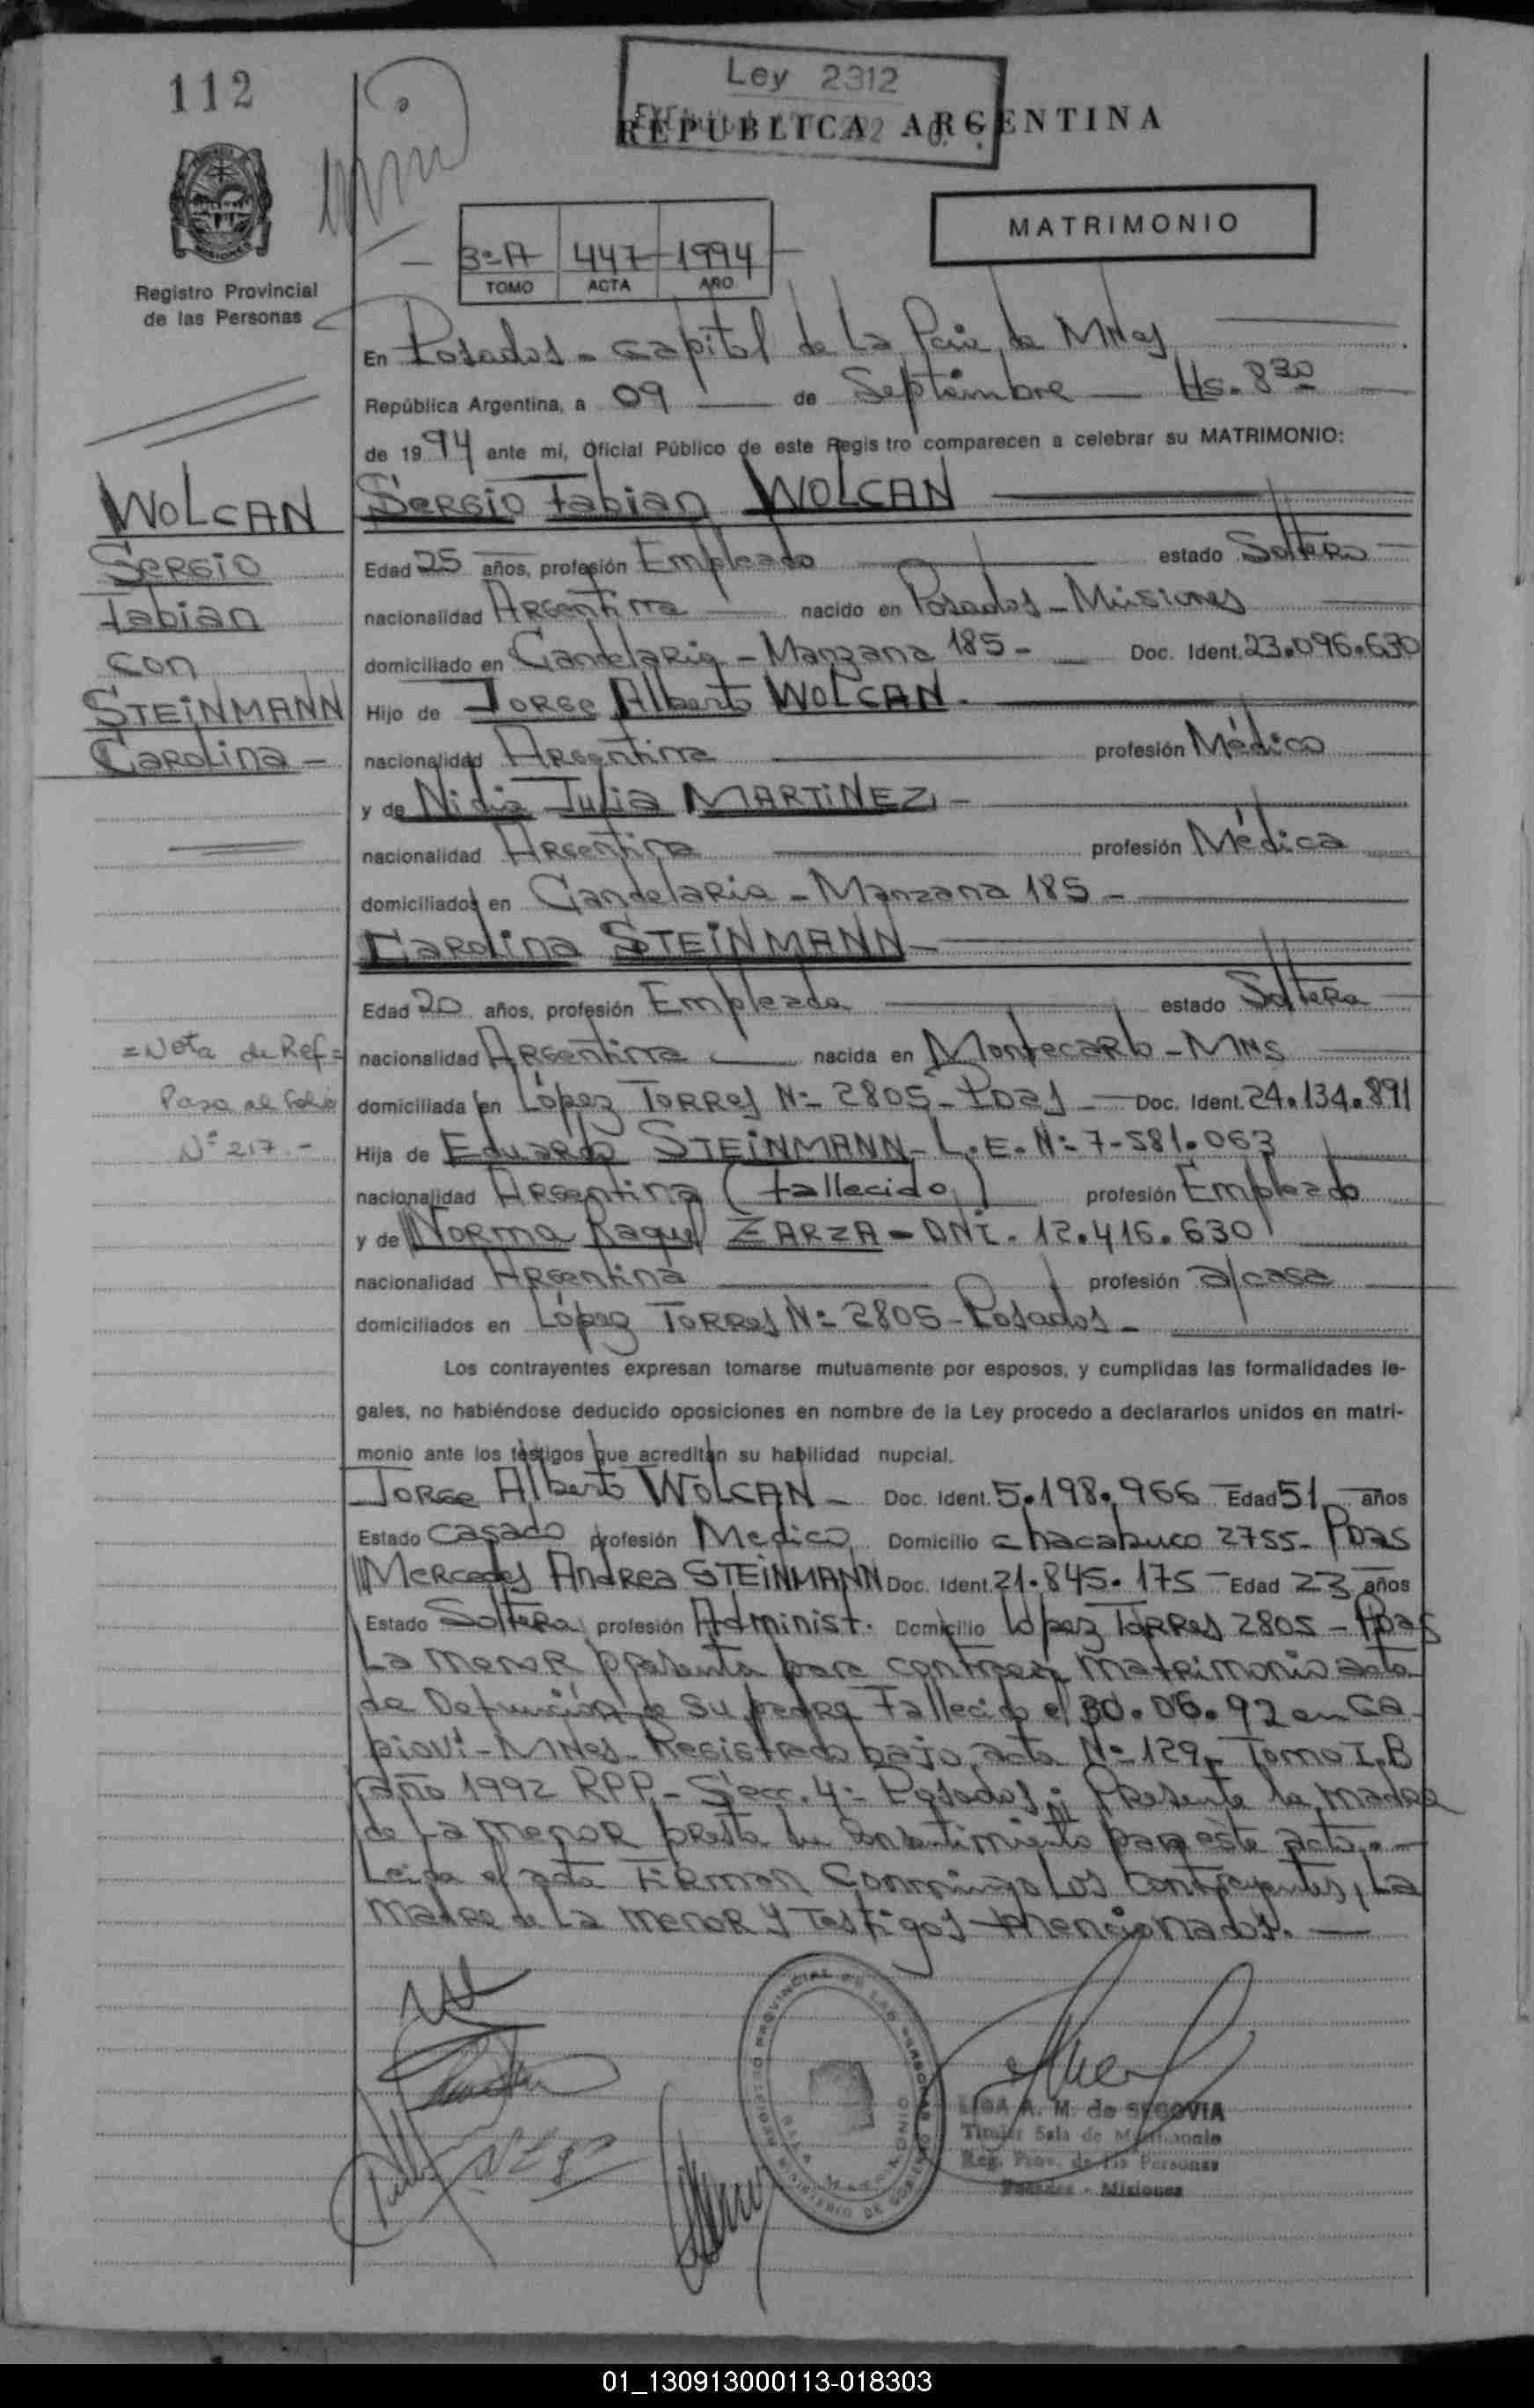 112
Ley 2312
REPUBLICA ARGENTINA
MATRIMONIO
Registro Provincial
de las Personas
3º A 447 1994
TOMO ACTA AÑO
En Posadas - capital de La Pcia de Mnes
República Argentina, a 09 de Septiembre Hs. 8 30
de 1994 ante mi, Oficial Público de este Registro comparecen a celebrar su MATRIMONIO:
WOLCAN
Sergio
Fabian
con
STEINMANN
Carolina -
Sergio Fabian WOLCAN
Edad 25 años, profesión Empleado estado Soltero
nacionalidad Argentina nacido en Posadas - Misiones
domiciliado en Candelaria - Manzana 185 - Doc. Ident. 23.096.630
Hijo de Jorge Alberto WOLCAN.
nacionalidad Argentina profesión Médico
y de Nidia Julia MARTINEZ -
nacionalidad Argentina profesión Médica
domiciliados en Candelaria - Manzana 185 -
Carolina STEINMANN
Edad 20 años, profesión Empleada estado Soltera
nacionalidad Argentina nacida en Montecarlo - Mns
domiciliada en López Torres Nº 2805 - Pdas - Doc. Ident. 24.134.891
Hija de Eduardo STEINMANN - L.E. Nº 7-581.063
nacionalidad Argentina (fallecido) profesión Empleado
y de Norma Raquel ZARZA - DNI. 12.416.630
nacionalidad Argentina profesión a/casa
domiciliados en López Torres Nº 2805 - Posadas -
= Nota de Ref =
Pasa al folio
Nº 217 -
Los contrayentes expresan tomarse mutuamente por esposos, y cumplidas las formalidades le-
gales, no habiéndose deducido oposiciones en nombre de la Ley procedo a declararlos unidos en matri-
monio ante los testigos que acreditan su habilidad nupcial.
Jorge Alberto WOLCAN - Doc. Ident. 5.198.966 Edad 51 años
Estado casado profesión Medico Domicilio chacabuco 2755 - Pdas
Mercedes Andrea STEINMANN Doc. Ident. 21.845.175 - Edad 23 años
Estado Soltera profesión Administ. Domicilio López Torres 2805 - Pdas
La menor presenta para contraer matrimonio acta
de Defunción de su padre Fallecido el 30.06.92 en Ca
piovi - Mnes - Registrado bajo acta Nº 129 - Tomo I.B
año 1992 RPP - Secc. 4º Posadas; Presente la madre
de La menor presta su consentimiento para este acto. -
Leida el acta Firman Conmigo Los Contrayentes, La
madre de La menor y Testigos mencionados. -
REGISTRO PROVINCIAL DE LAS PERSONAS
SALA MATRIMONIO
MINISTERIO DE GOBIERNO
LIGA A. M. de SEGOVIA
Titular Sala de Matrimonio
Reg. Prov. de las Personas
Posadas - Misiones
01_130913000113-018303